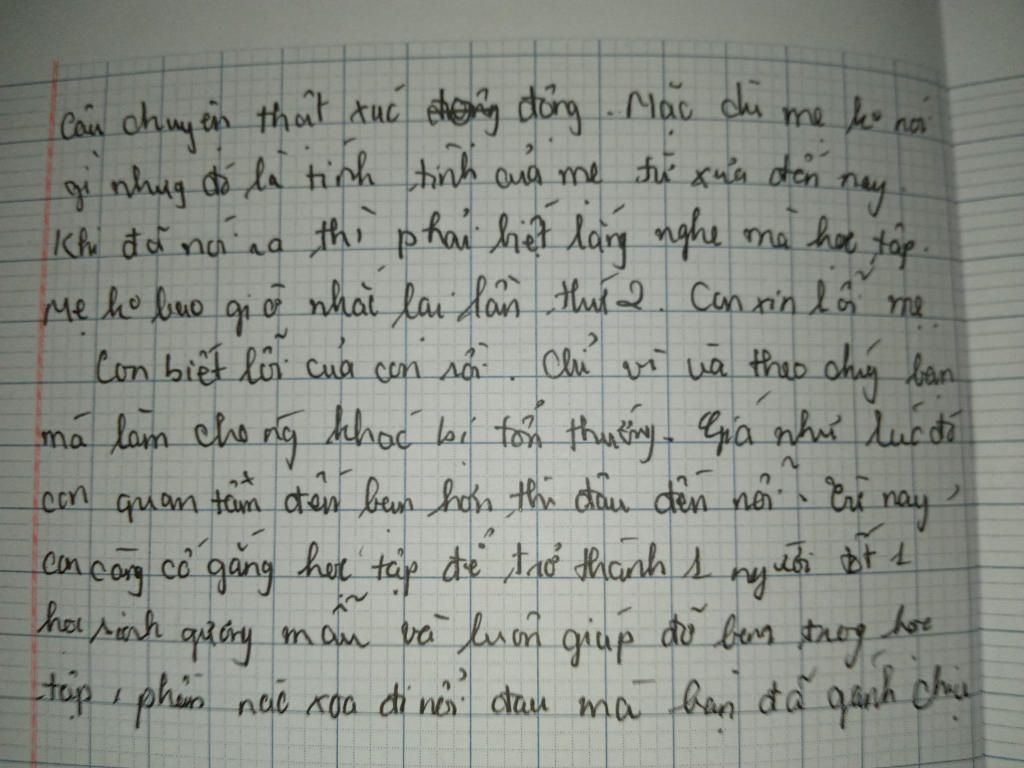 Câu chuyện thật xúc động. Mặc dù mẹ ko nói
gì nhưg đó là tính tình của mẹ từ xưa đến nay.
Khi đã nói ra thì phải biết lắng nghe mà học tập.
Mẹ ko bao giờ nhắc lại lần thứ 2. Con xin lỗi mẹ
Con biết lỗi của con rồi. Chỉ vì và theo chúg bạn
mà làm cho ng khác bị tổn thương. Giá như lúc đó
con quan tâm đến bạn hơn thì đâu đến nỗi. Từ nay,
con càng cố gắng học tập để trở thành 1 người 1
học sinh gương mẫu và luôn giúp đỡ bạn trog học
tập, phần nào xoa đi nỗi đau mà bạn đã gánh chịu